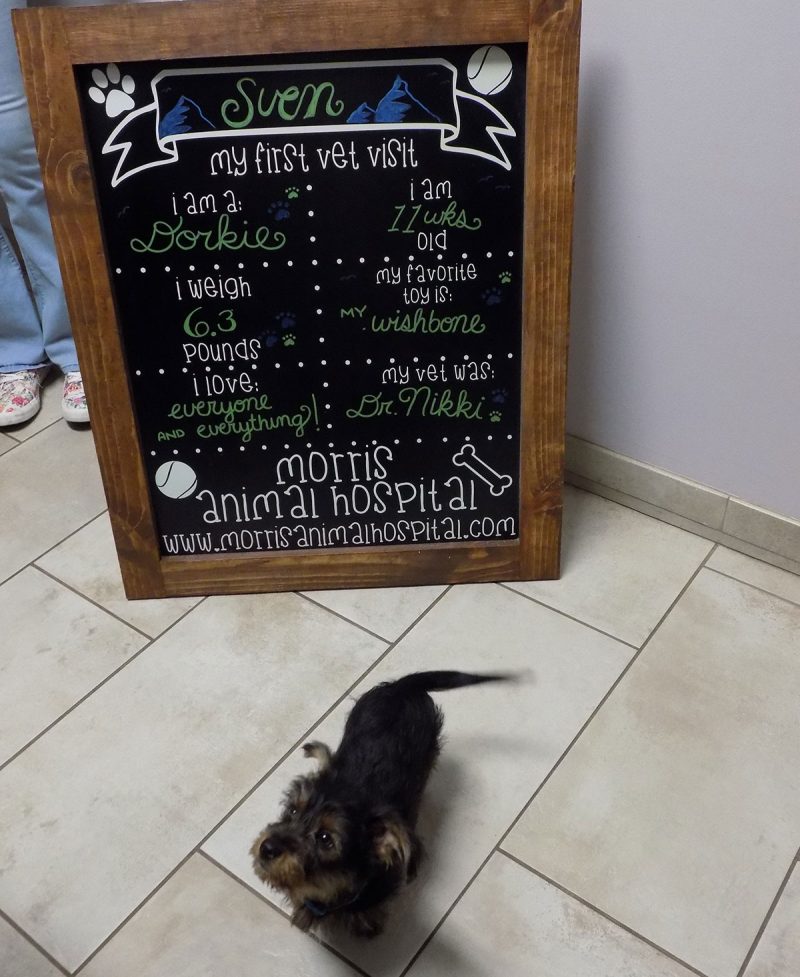 Sven
my first vet visit
i am a:
Dorkie
i am
11 wks
old
i weigh
6.3
pounds
my favorite
toy is:
MY wishbone
i love:
everyone
AND everything!
my vet was:
Dr. Nikki
morris
animal hospital
www.morrisanimalhospital.com